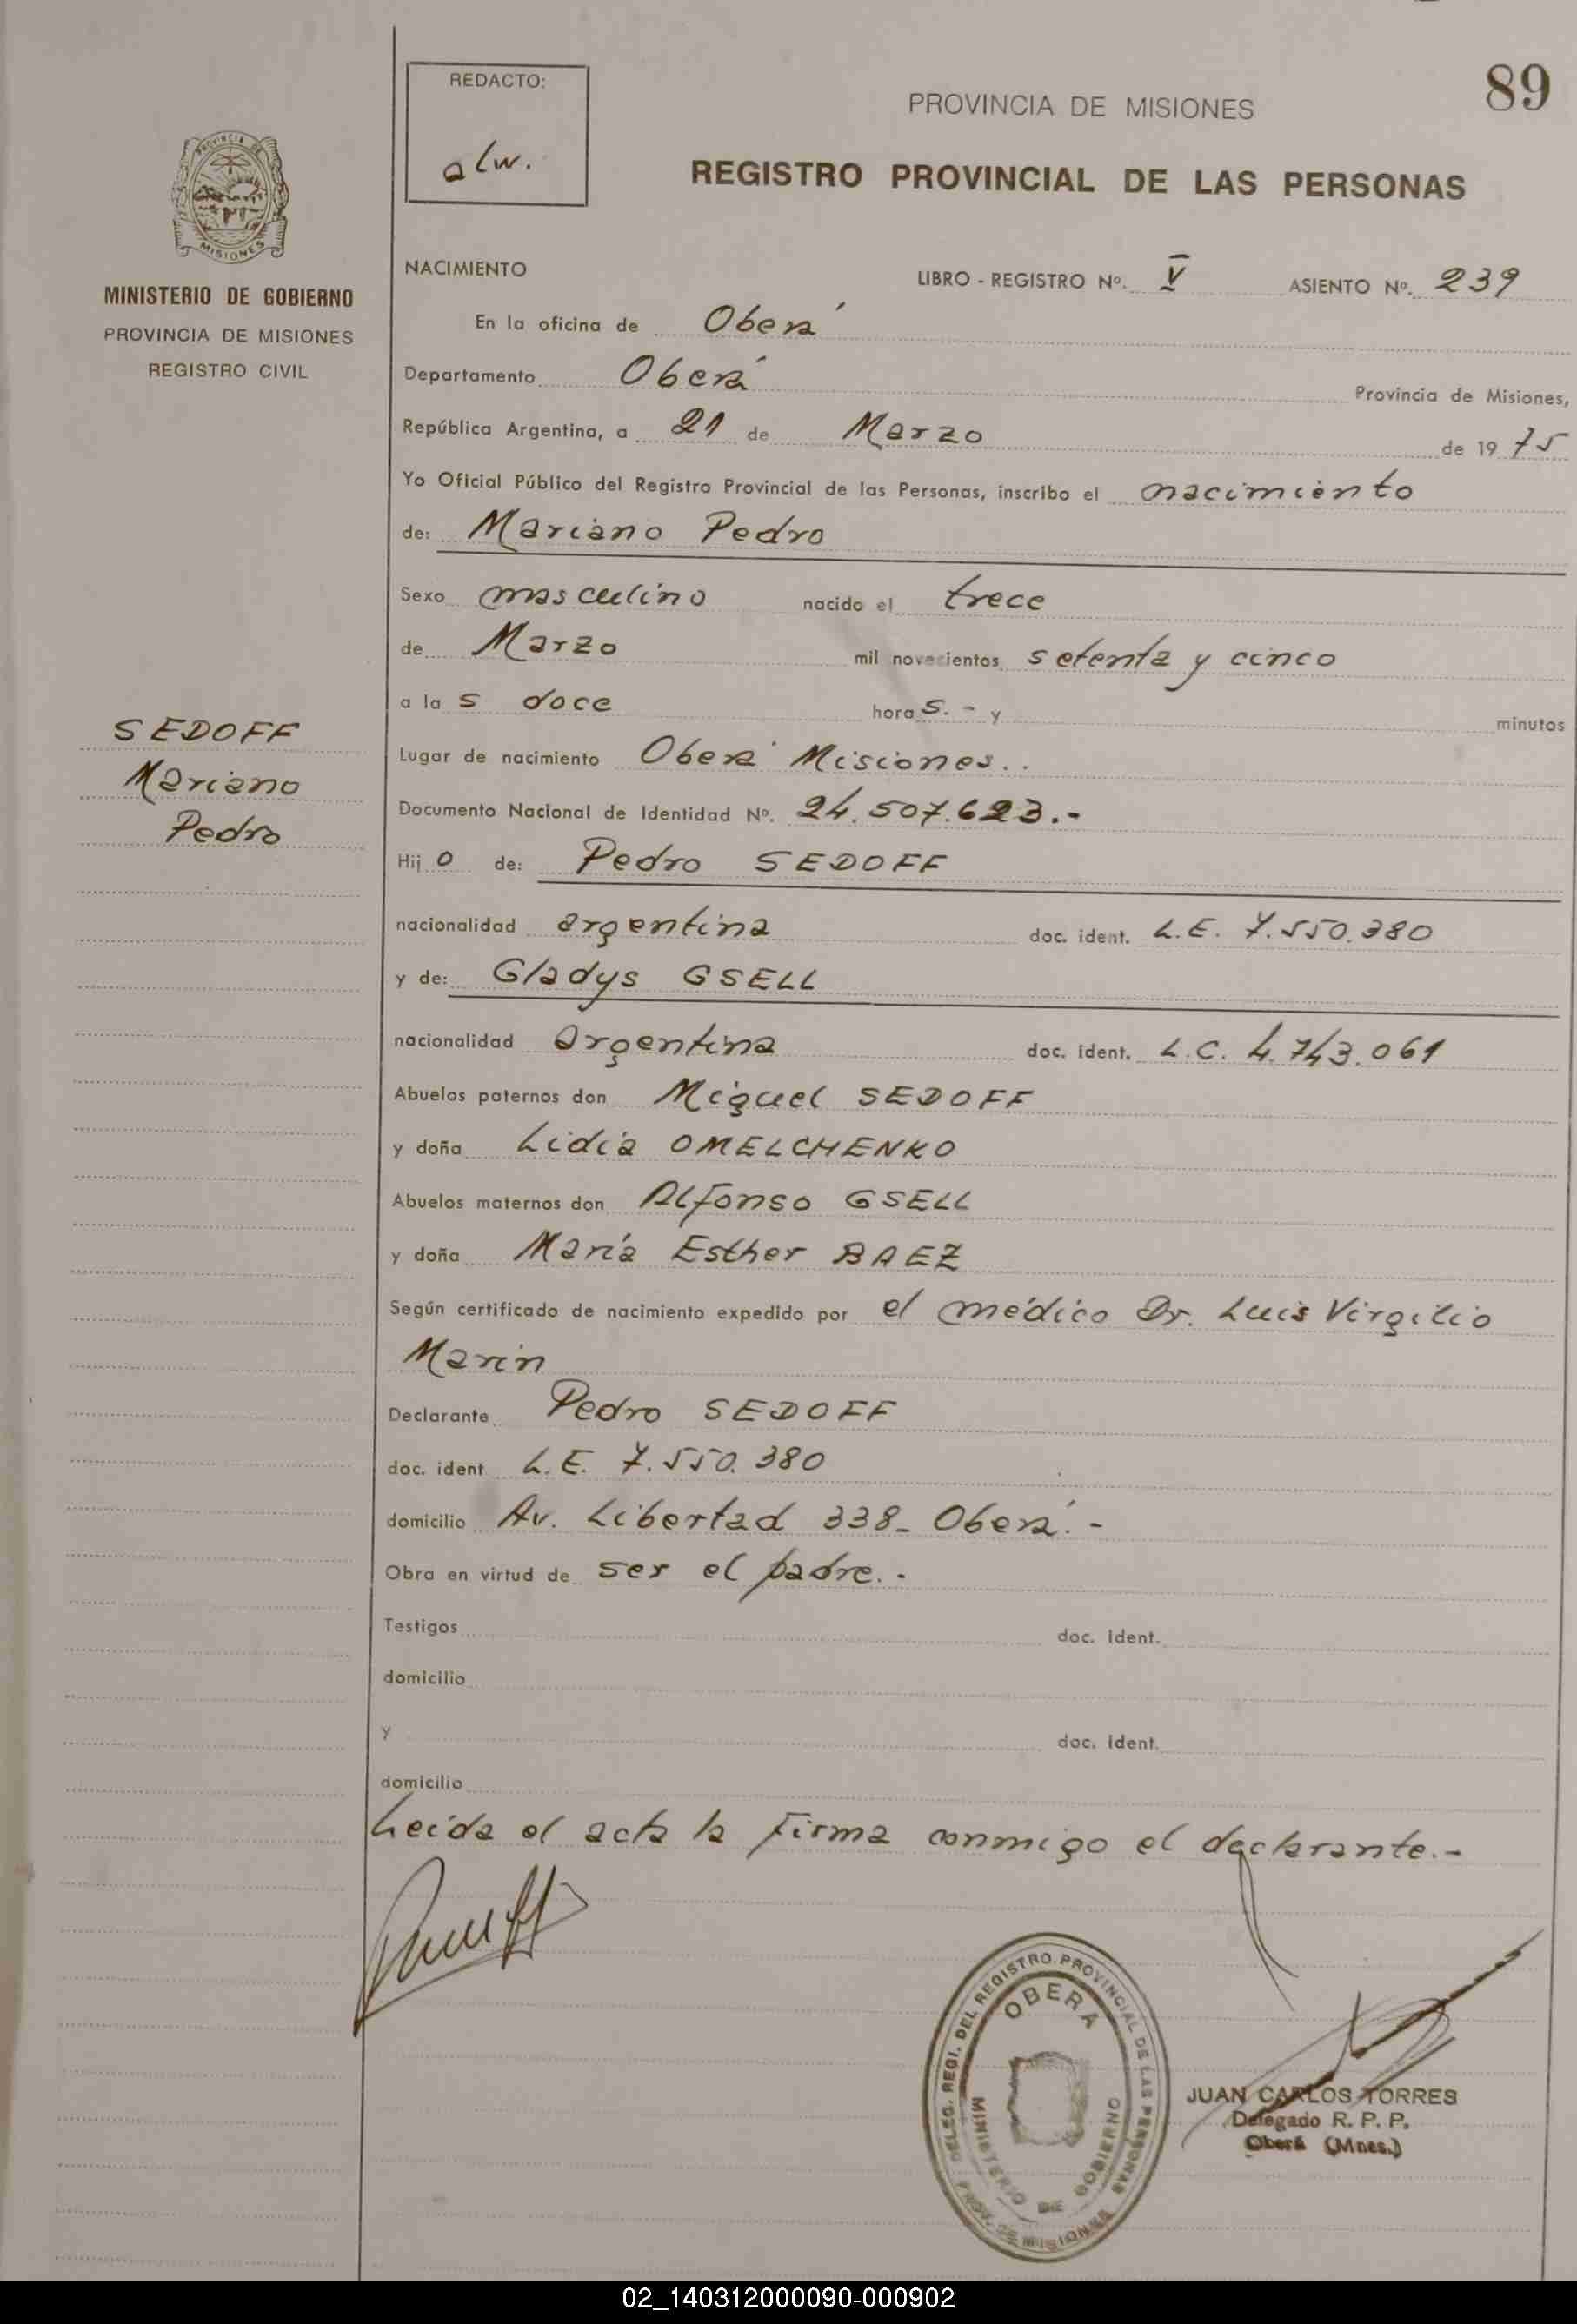 89
REDACTO:
alw.
PROVINCIA DE MISIONES
REGISTRO PROVINCIAL DE LAS PERSONAS
PROVINCIA DE
MISIONES
MINISTERIO DE GOBIERNO
PROVINCIA DE MISIONES
REGISTRO CIVIL
NACIMIENTO LIBRO - REGISTRO Nº. V ASIENTO Nº. 239
En la oficina de Oberá
Departamento Oberá Provincia de Misiones,
República Argentina, a 21 de Marzo de 1975
Yo Oficial Público del Registro Provincial de las Personas, inscribo el nacimiento
de: Mariano Pedro
Sexo masculino nacido el trece
de Marzo mil novecientos setenta y cinco
a las doce horas.- y minutos
SEDOFF
Mariano
Pedro
Lugar de nacimiento Oberá Misiones..
Documento Nacional de Identidad Nº. 24.507.623.-
Hijo de: Pedro SEDOFF
nacionalidad argentina doc. ident. L.E. 7.550.380
y de: Gladys GSELL
nacionalidad argentina doc. ident. L.C. 4.743.061
Abuelos paternos don Miguel SEDOFF
y doña Lidia OMELCHENKO
Abuelos maternos don Alfonso GSELL
y doña María Esther BAEZ
Según certificado de nacimiento expedido por el médico Dr. Luis Virgilio
Marin
Declarante Pedro SEDOFF
doc. ident L.E. 7.550.380
domicilio Av. Libertad 338- Oberá.-
Obra en virtud de ser el padre.-
Testigos doc. ident.
domicilio
y doc. ident.
domicilio
Leida el acta la firma conmigo el declarante.-
DELEG. REGI. DEL REGISTRO PROVINCIAL DE LAS PERSONAS
OBERA
MINISTERIO DE GOBIERNO
PROV. DE MISIONES
JUAN CARLOS TORRES
Delegado R. P. P.
Oberá (Mnes.)
02_140312000090-000902